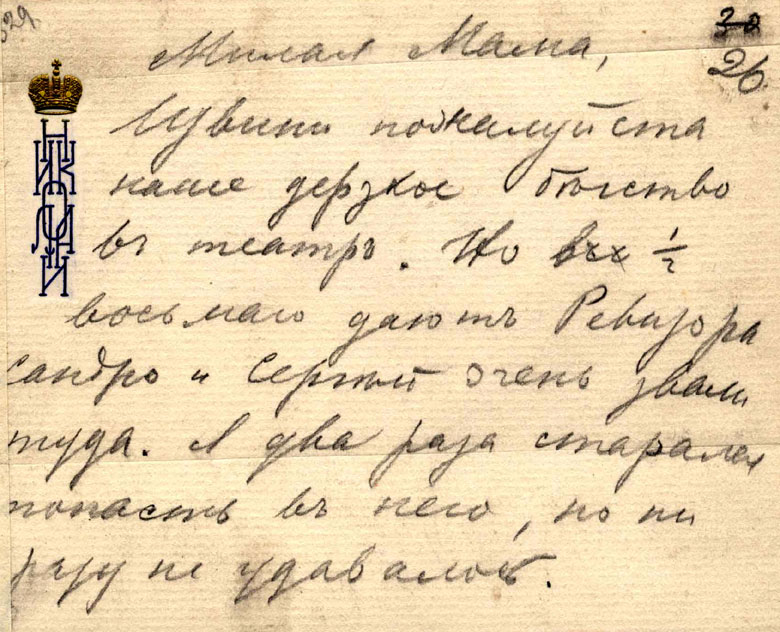 329.
32
26
Милая Мама,
Извини пожалуйста
наше дерзкое бѣгство
въ театръ. Но въ ½
восьмаго даютъ Ревизора
Сандро и Сергѣй очень звали
туда. Я два раза старался
попасть въ него, но ни
разу не удавалось.
НИКОЛАЙ